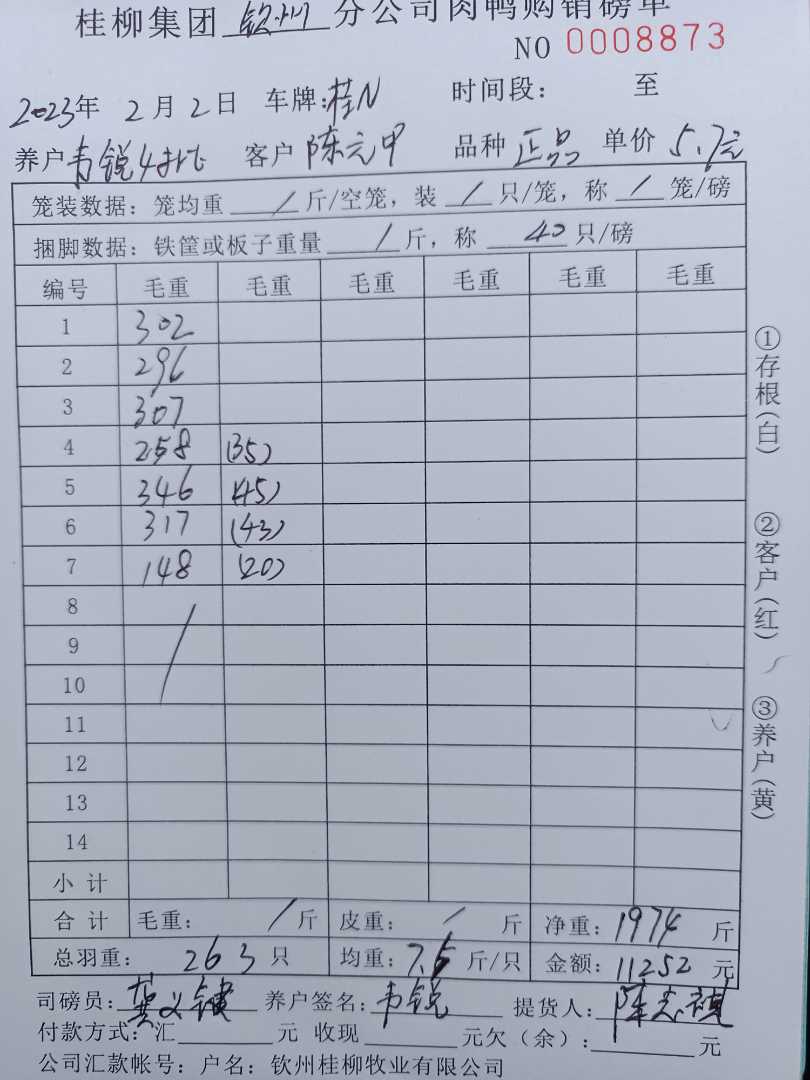 桂柳集团 钦州 分公司肉鸭购销磅单
NO 0008873
2023年 2月2日 车牌:桂N 时间段: 至
养户 韦锐4批 客户 陈元甲 品种 正品 单价 5.7元
笼装数据: 笼均重 / 斤/空笼, 装 / 只/笼, 称 / 笼/磅
捆脚数据: 铁筐或板子重量 / 斤, 称 40 只/磅
编号 毛重 毛重 毛重 毛重 毛重 毛重
1 302
2 296
3 307
4 258 (35)
5 346 (45)
6 317 (43)
7 148 (20)
8
9
10
11
12
13
14
小计
合计 毛重: / 斤 皮重: / 斤 净重: 1974 斤
总羽重: 263 只 均重: 7.5 斤/只 金额: 11252 元
司磅员: 龚义键 养户签名: 韦锐 提货人: 陈志
付款方式: 汇 元 收现 元欠(余): 元
公司汇款帐号: 户名: 钦州桂柳牧业有限公司
①存根(白)
②客户(红)
③养户(黄)